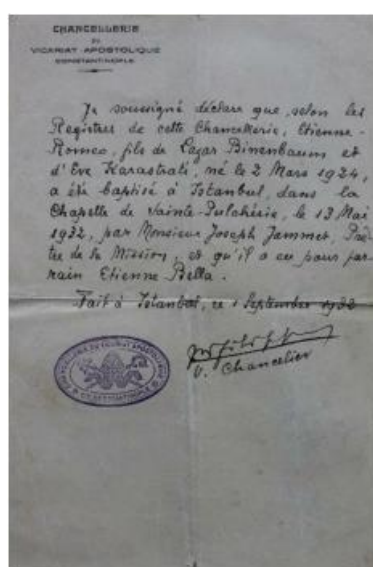 CHANCELLERIE
DU
VICARIAT-APOSTOLIQUE
CONSTANTINOPLE
Je soussigné déclare que, selon les
Registres de cette Chancellerie, Etienne-
Romeo, fils de Lazar Binenbaum et
d'Eve Karastrati, né le 2 Mars 1924,
a été baptisé à Istanbul, dans la
Chapelle de Sainte-Pulchérie, le 13 Mai
1932, par Monsieur Joseph Jammet, Prê-
tre de la Mission, et qu'il a eu pour par-
rain Etienne Bella.
Fait à Istanbul, ce 1 Septembre 1932
V. Chancelier
CHANCELLERIE DU VICARIAT APOSTOLIQUE
CONSTANTINOPLE